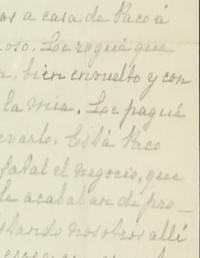 os a casa de Paco á
oso. Le rogué que
n, bien envuelto y con
la mia. Le pagué
evarlo. Está Paco
fatal el negocio, que
le acababan de pro-
stando nosotros allí